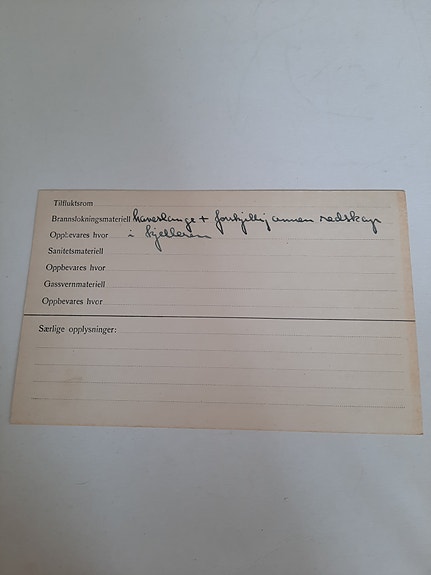 Tilfluktsrom
Brannslokningsmateriell haveslange + forskjellig annen redskap
Oppbevares hvor i kjelleren
Sanitetsmateriell
Oppbevares hvor
Gassvernmateriell
Oppbevares hvor
Særlige opplysninger: